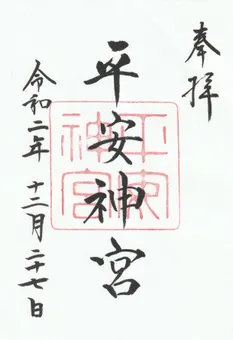 奉拝
平安神宮
令和二年 十二月二十七日
平安神宮